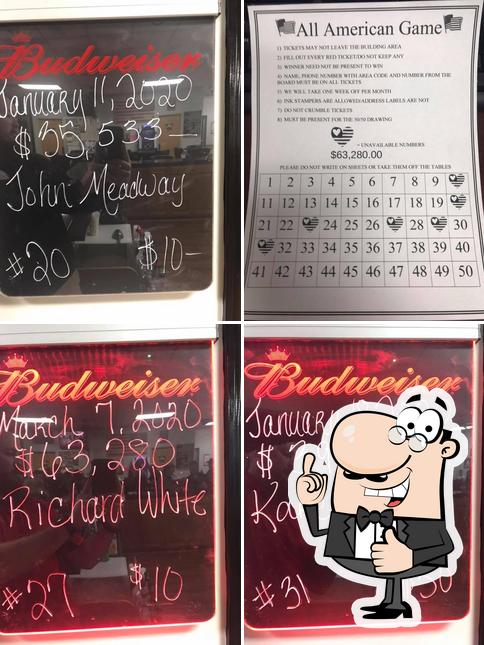 Budweiser
January 11, 2020
$55,533—
John Meadway
#20 $10—
All American Game
1) TICKETS MAY NOT LEAVE THE BUILDING AREA
2) FILL OUT EVERY RED TICKET/DO NOT KEEP ANY
3) WINNER NEED NOT BE PRESENT TO WIN
4) NAME, PHONE NUMBER WITH AREA CODE AND NUMBER FROM THE
BOARD MUST BE ON ALL TICKETS
5) WE WILL TAKE ONE WEEK OFF PER MONTH
6) INK STAMPERS ARE ALLOWED/ADDRESS LABELS ARE NOT
7) DO NOT CRUMBLE TICKETS
8) MUST BE PRESENT FOR THE 50/50 DRAWING
= UNAVAILABLE NUMBERS
$63,280.00
PLEASE DO NOT WRITE ON SHEETS OR TAKE THEM OFF THE TABLES
1 2 3 4 5 6 7 8 9
12 13 14 15 16 17 18 19
21 22 24 25 26 28 30
32 33 34 35 36 37 38 39 40
41 42 43 44 45 46 47 48 49 50
Budweiser
March 7, 2020
$63,280
Richard White
#27 $10
Budweiser
$
#31